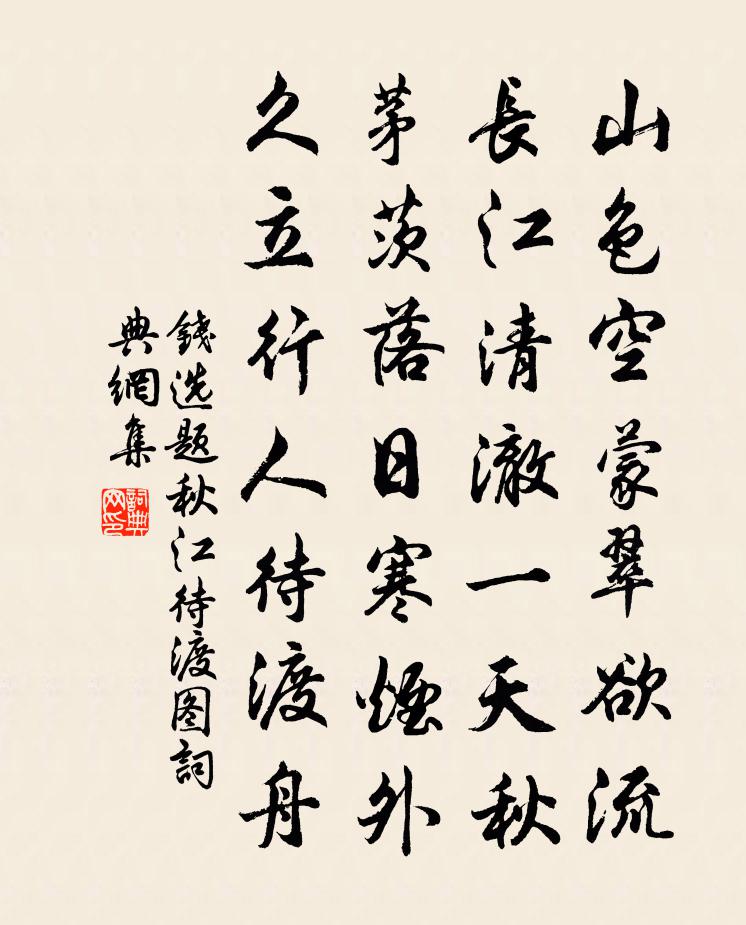 山色空蒙翠欲流
長江清澈一天秋
茅茨落日寒煙外
久立行人待渡舟
錢选题秋江待渡图詞
典網集
詞典
网印